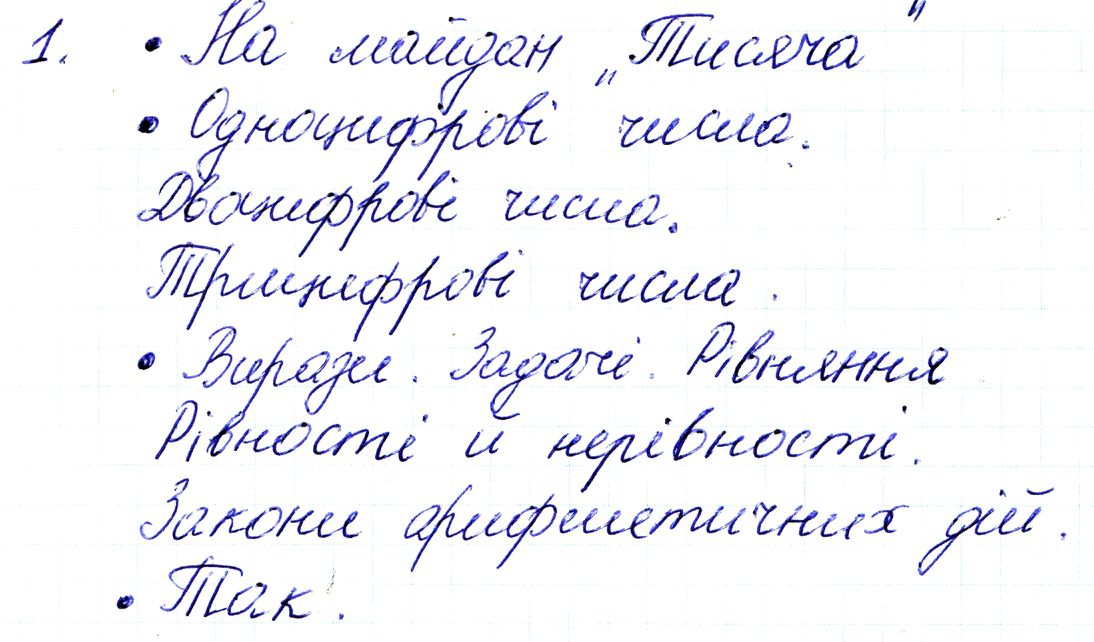 1. • На майдан „Тисяча"
• Одноцифрові числа.
Двоцифрові числа.
Трицифрові числа.
• Вирази. Задачі. Рівняння
Рівності й нерівності.
Закони арифметичних дій.
• Так.